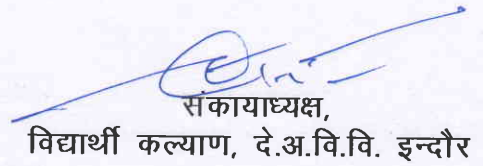 संकायाध्यक्ष,
विद्यार्थी कल्याण, दे.अ.वि.वि. इन्दौर